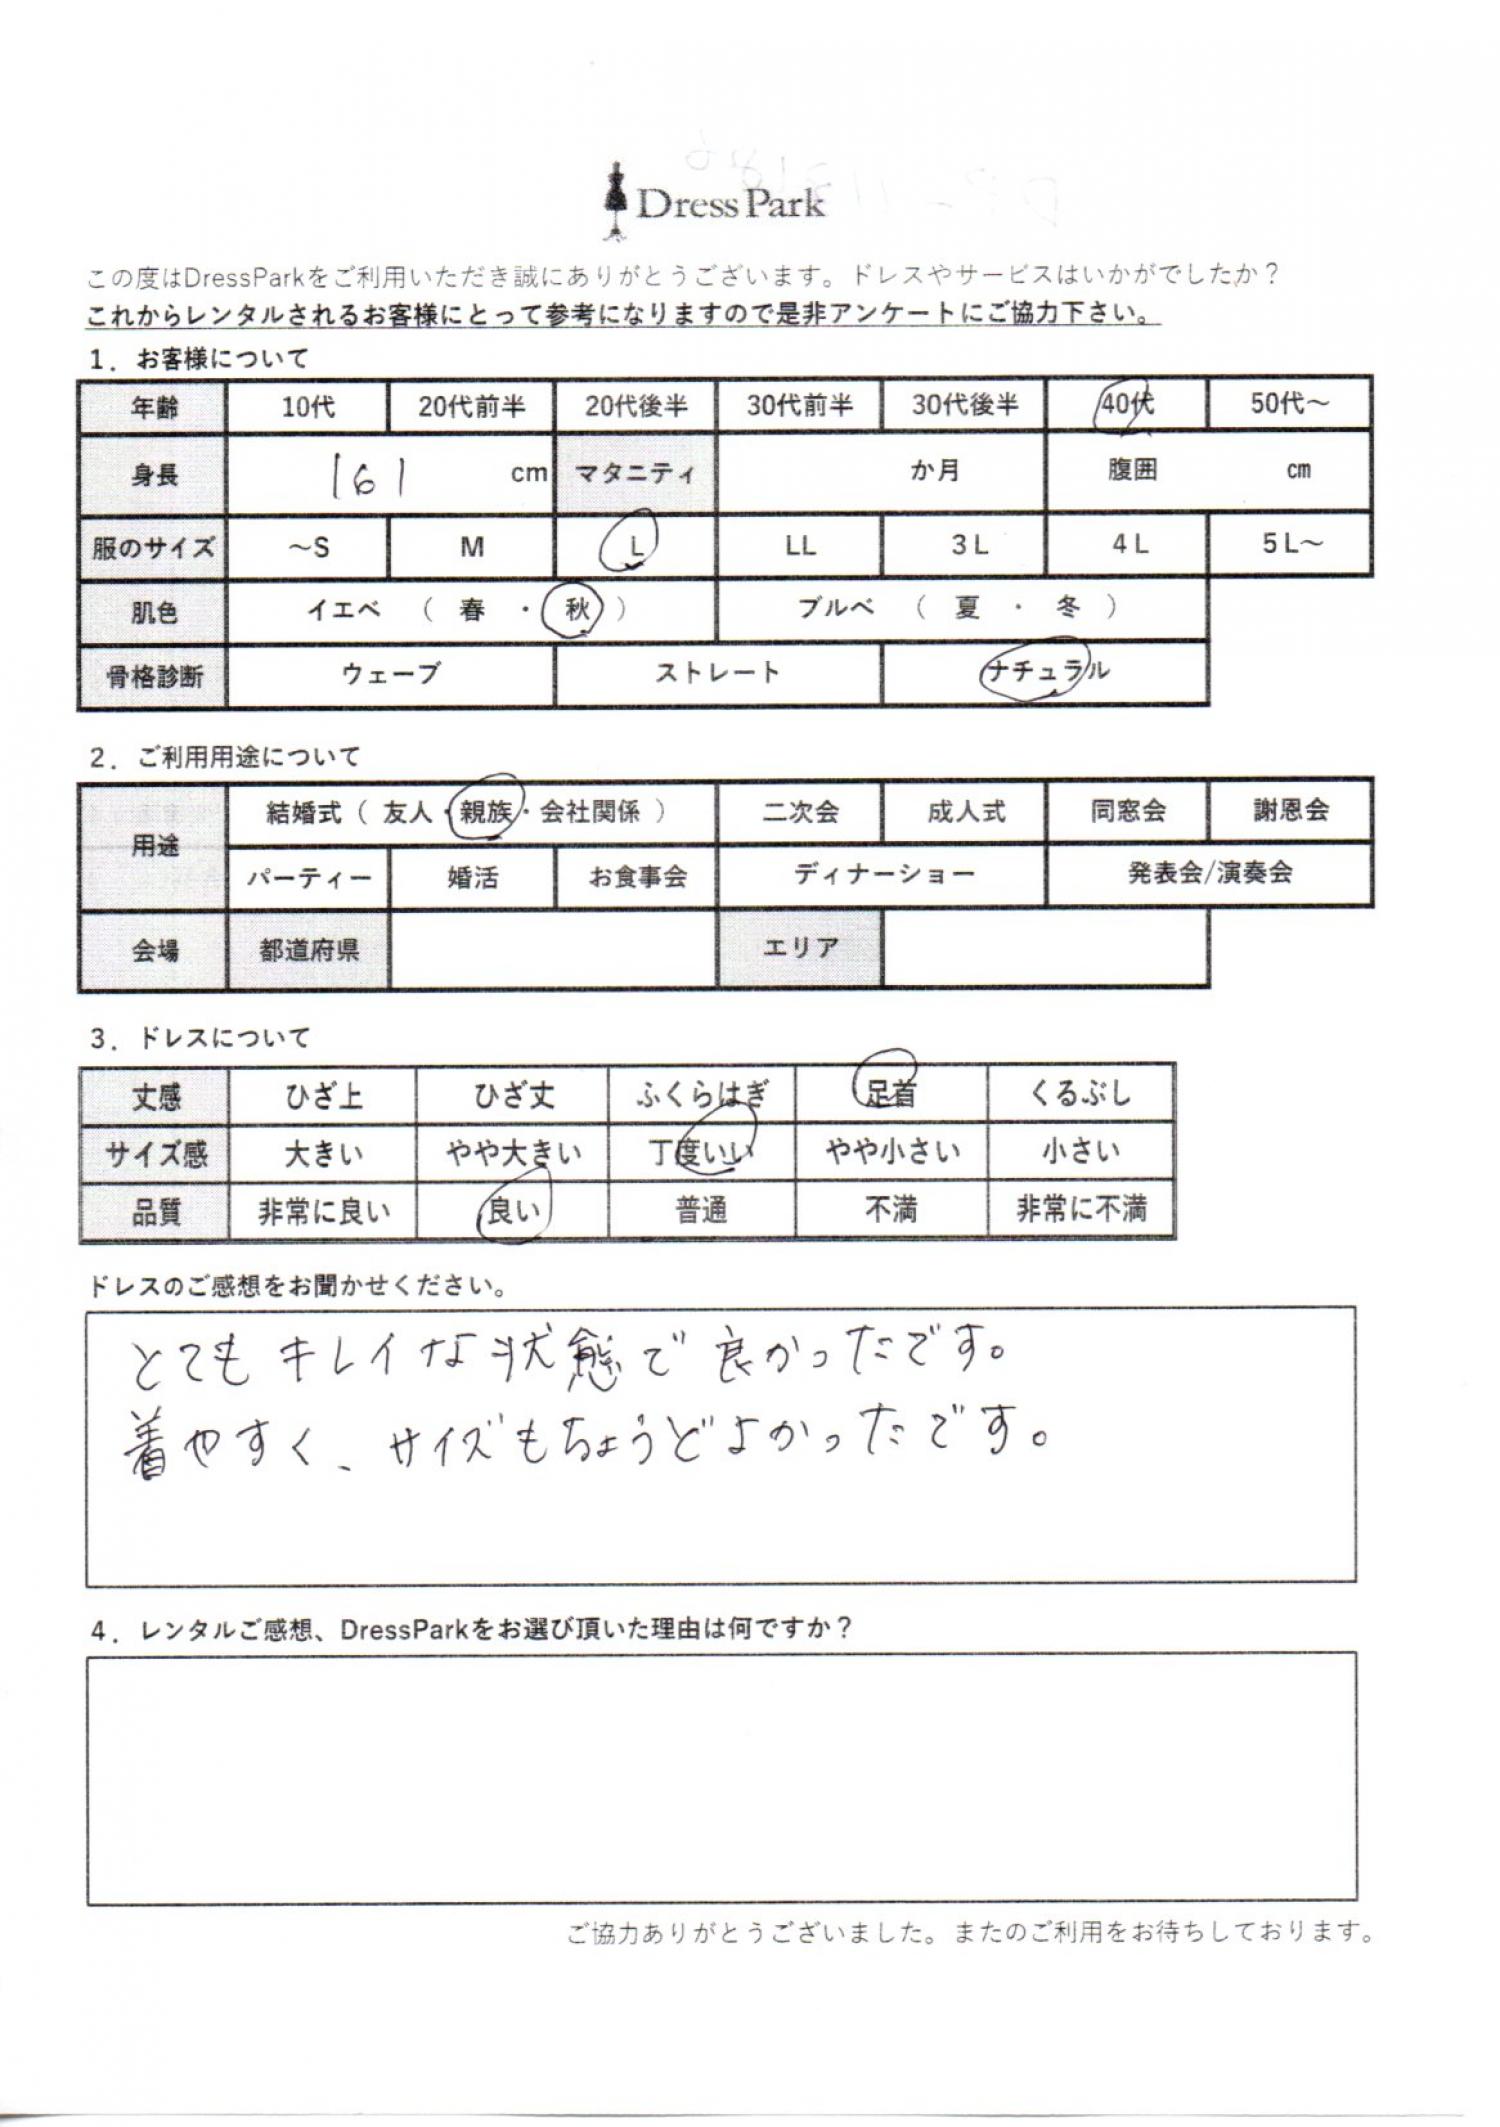 Dress Park
この度はDressParkをご利用いただき誠にありがとうございます。ドレスやサービスはいかがでしたか？
これからレンタルされるお客様にとって参考になりますので是非アンケートにご協力下さい。
1．お客様について
年齢 10代 20代前半 20代後半 30代前半 30代後半 40代 50代～
身長 161 cm マタニティ か月 腹囲 ㎝
服のサイズ ～S M L LL 3L 4L 5L～
肌色 イエベ （ 春 ・ 秋 ） ブルベ （ 夏 ・ 冬 ）
骨格診断 ウェーブ ストレート ナチュラル
2．ご利用用途について
用途 結婚式（ 友人・親族・会社関係 ） 二次会 成人式 同窓会 謝恩会
パーティー 婚活 お食事会 ディナーショー 発表会/演奏会
会場 都道府県 エリア
3．ドレスについて
丈感 ひざ上 ひざ丈 ふくらはぎ 足首 くるぶし
サイズ感 大きい やや大きい 丁度いい やや小さい 小さい
品質 非常に良い 良い 普通 不満 非常に不満
ドレスのご感想をお聞かせください。
とてもキレイな状態で良かったです。
着やすく、サイズもちょうどよかったです。
4．レンタルご感想、DressParkをお選び頂いた理由は何ですか？
ご協力ありがとうございました。またのご利用をお待ちしております。